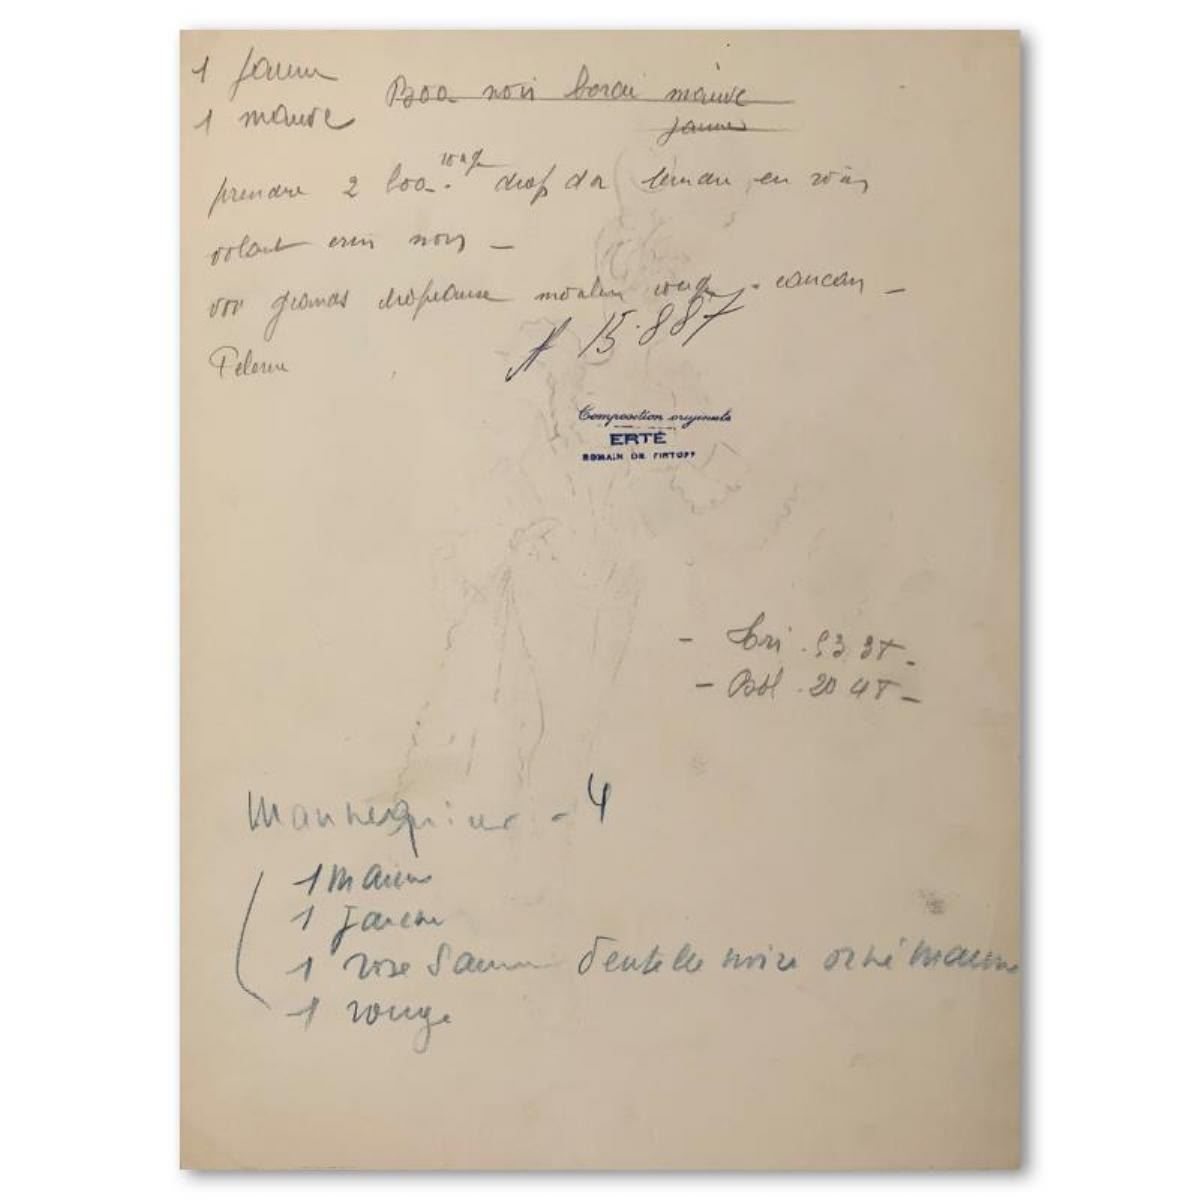 1 jaune
1 mauve
Boa noir bordé mauve
jaune
prendre 2 boa rouge drap d'or en
volant crin noir –
grands chapeaux moulin rouge - cancan –
N 15.887
Pelerine
Composition originale
ERTÉ
ROMAIN DE TIRTOFF
–
– Bol. 20 48 –
Mannequins - 4
1 mauve
1 jaune
1 rose Saumon dentelle noire orné mauve
1 rouge